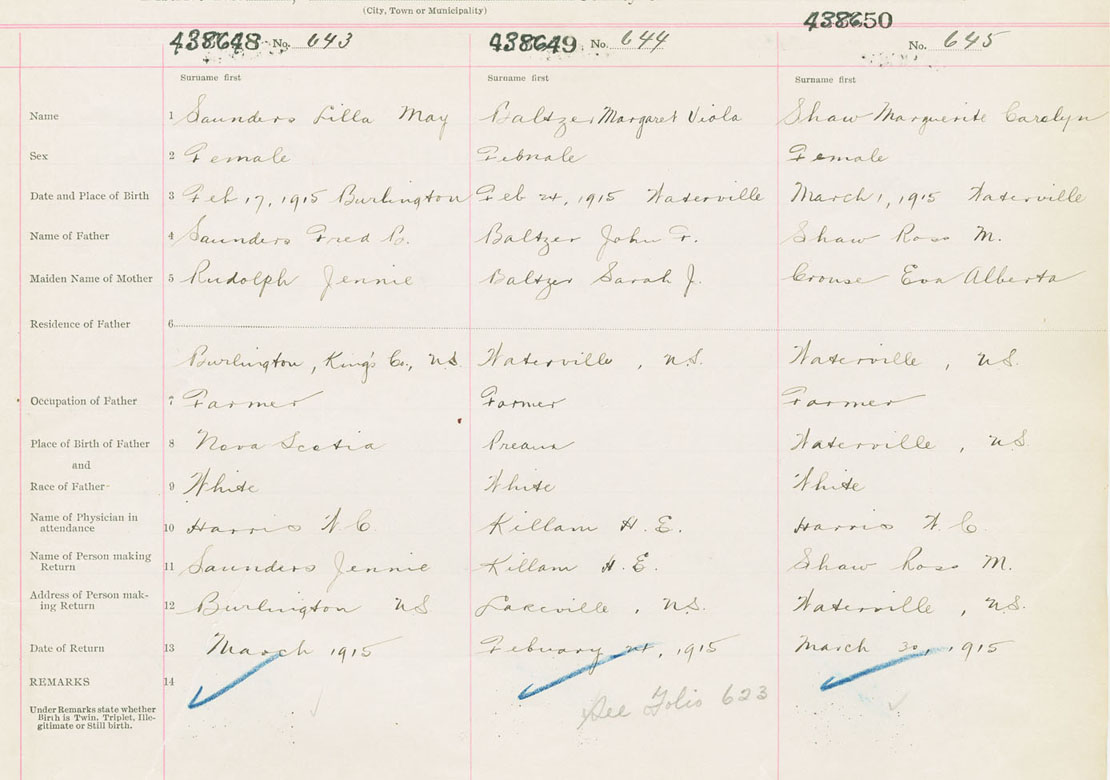 (City, Town or Municipality)
438648 No. 643 438649 No. 644 438650 No. 645
Surname first Surname first Surname first
Name 1 Saunders Lilla May Baltzer Margaret Viola Shaw Marguerite Carolyn
Sex 2 Female Female Female
Date and Place of Birth 3 Feb 17, 1915 Burlington Feb 24, 1915 Waterville March 1, 1915 Waterville
Name of Father 4 Saunders Fred B. Baltzer John F. Shaw Ross M.
Maiden Name of Mother 5 Rudolph Jennie Baltzer Sarah J. Crouse Eva Alberta
Residence of Father 6
Burlington, King's Co., NS Waterville, NS. Waterville, NS.
Occupation of Father 7 Farmer Farmer Farmer
Place of Birth of Father 8 Nova Scotia Waterville, NS
and
Race of Father 9 White White White
Name of Physician in
attendance 10 Harris W. C. Killam H. E. Harris W. C.
Name of Person making
Return 11 Saunders Jennie Killam H. E. Shaw Ross M.
Address of Person mak-
ing Return 12 Burlington NS Lakeville, NS. Waterville, NS.
Date of Return 13 March 1915 February 1915 March 30, 1915
REMARKS 14
See Folio 623
Under Remarks state whether
Birth is Twin, Triplet, Ille-
gitimate or Still birth.